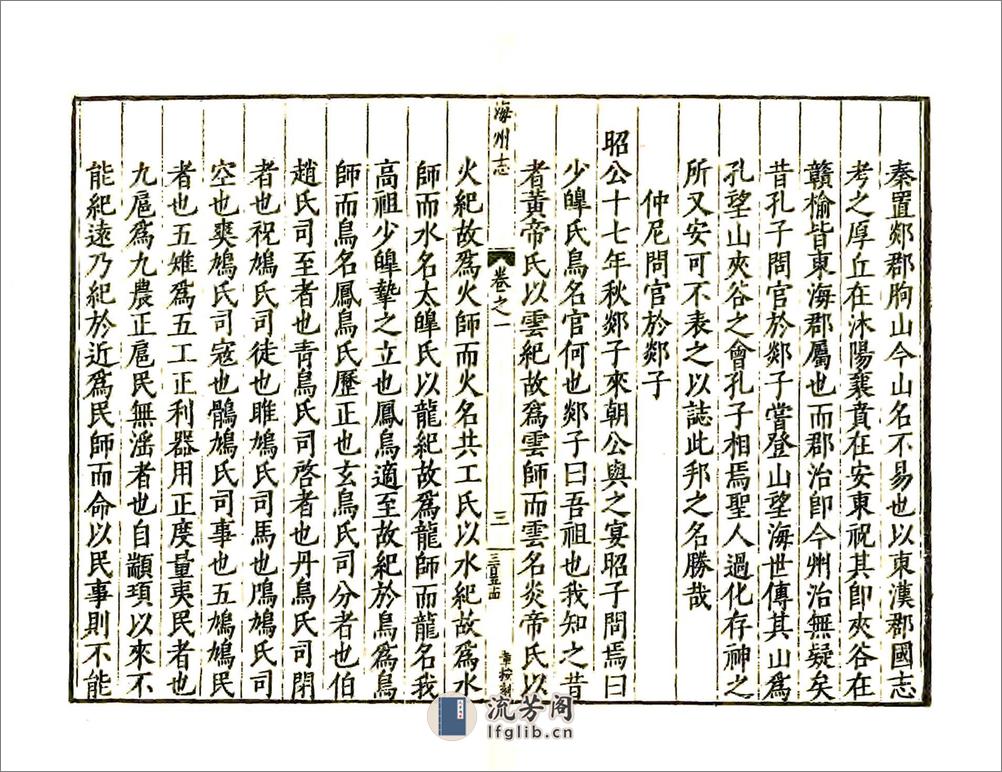 秦置郯郡朐山今山名不易也以東漢郡國志
考之厚丘在沭陽襄賁在安東祝其即夾谷在
贛榆皆東海郡屬也而郡治即今州治無疑矣
昔孔子問官於郯子嘗登山望海世傳其山爲
孔望山夾谷之會孔子相焉聖人過化存神之
所又安可不表之以誌此邦之名勝哉
仲尼問官於郯子
昭公十七年秋郯子來朝公與之宴昭子問焉曰
少皥氏鳥名官何也郯子曰吾祖也我知之昔
者黃帝氏以雲紀故爲雲師而雲名炎帝氏以
海州志
卷之一
三
三百五十
章按刻
火紀故爲火師而火名共工氏以水紀故爲水
師而水名太皥氏以龍紀故爲龍師而龍名我
高祖少皥摯之立也鳳鳥適至故紀於鳥爲鳥
師而鳥名鳳鳥氏歷正也玄鳥氏司分者也伯
趙氏司至者也青鳥氏司啓者也丹鳥氏司閉
者也祝鳩氏司徒也雎鳩氏司馬也鳲鳩氏司
空也爽鳩氏司寇也鶻鳩氏司事也五鳩鳩民
者也五雉爲五工正利器用正度量夷民者也
九扈爲九農正扈民無淫者也自顓頊以來不
能紀遠乃紀於近爲民師而命以民事則不能
流芳阁
lfglib.cn